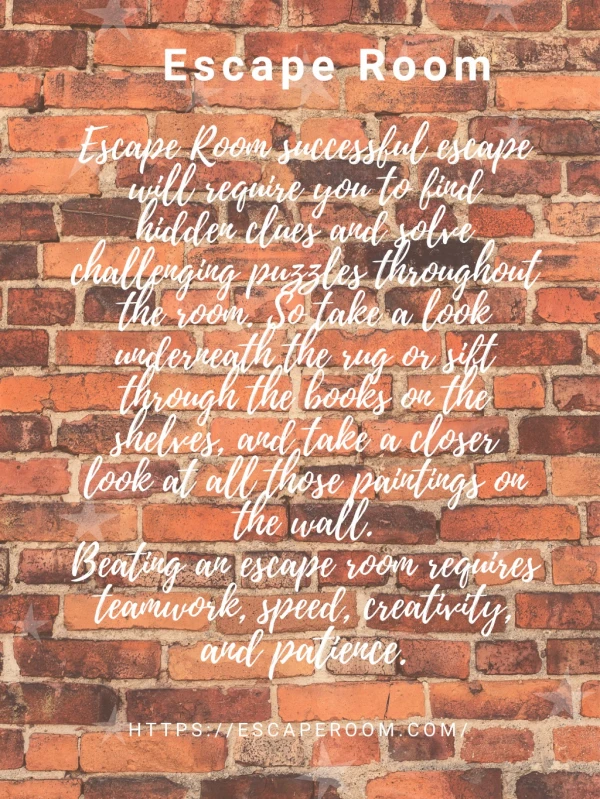 Escape Room
Escape Room successful escape
will require you to find
hidden clues and solve
challenging puzzles throughout
the room. So take a look
underneath the rug or sift
through the books on the
shelves, and take a closer
look at all those paintings on
the wall.
Beating an escape room requires
teamwork, speed, creativity,
and patience.
HTTPS://ESCAPEROOM.COM/